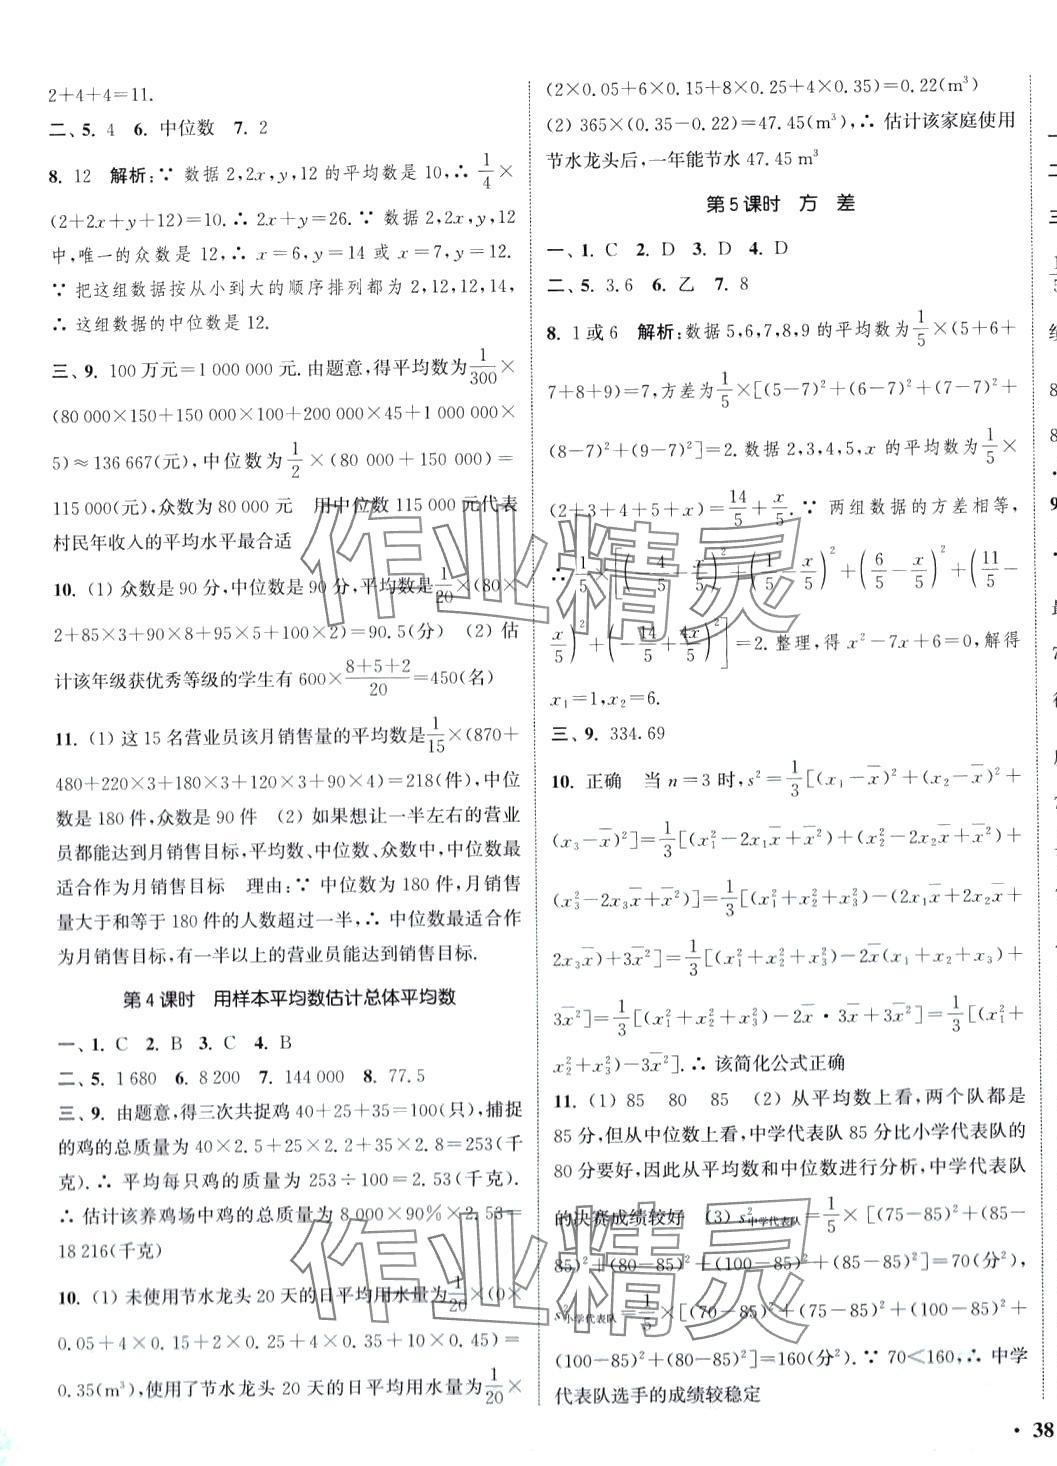 2+4+4=11.
二、5. 4 6. 中位数 7. 2
8. 12 解析:∵ 数据 2,2x,y,12 的平均数是 10,∴ 1/4 ×
(2+2x+y+12)=10.∴ 2x+y=26.∵ 数据 2,2x,y,12
中,唯一的众数是 12,∴ x=6,y=14 或 x=7,y=12.
∵ 把这组数据按从小到大的顺序排列都为 2,12,12,14,
∴ 这组数据的中位数是 12.
三、9. 100 万元=1 000 000 元.由题意,得平均数为 1/300 ×
(80 000×150+150 000×100+200 000×45+1 000 000×
5)≈136 667(元),中位数为 1/2 ×(80 000+150 000)=
115 000(元),众数为 80 000 元 用中位数 115 000 元代表
村民年收入的平均水平最合适
10. (1) 众数是 90 分,中位数是 90 分,平均数是 1/20 ×(80×
2+85×3+90×8+95×5+100×2)=90.5(分) (2) 估
计该年级获优秀等级的学生有 600× (8+5+2)/20 =450(名)
11. (1) 这 15 名营业员该月销售量的平均数是 1/15 ×(870+
480+220×3+180×3+120×3+90×4)=218(件),中位
数是 180 件,众数是 90 件 (2) 如果想让一半左右的营业
员都能达到月销售目标,平均数、中位数、众数中,中位数最
适合作为月销售目标 理由:∵ 中位数为 180 件,月销售
量大于和等于 180 件的人数超过一半,∴ 中位数最适合作
为月销售目标,有一半以上的营业员能达到销售目标.
第 4 课时 用样本平均数估计总体平均数
一、1. C 2. B 3. C 4. B
二、5. 1 680 6. 8 200 7. 144 000 8. 77.5
三、9. 由题意,得三次共捉鸡 40+25+35=100(只),捕捉
的鸡的总质量为 40×2.5+25×2.2+35×2.8=253(千
克).∴ 平均每只鸡的质量为 253÷100=2.53(千克).
∴ 估计该养鸡场中鸡的总质量为 8 000×90%×2.53=
18 216(千克)
10. (1) 未使用节水龙头 20 天的日平均用水量为 1/20 ×(0×
0.05+4×0.15+2×0.25+4×0.35+10×0.45)=
0.35(m³),使用了节水龙头 20 天的日平均用水量为 1/20 ×
(2×0.05+6×0.15+8×0.25+4×0.35)=0.22(m³)
(2) 365×(0.35-0.22)=47.45(m³),∴ 估计该家庭使用
节水龙头后,一年能节水 47.45 m³
第 5 课时 方 差
一、1. C 2. D 3. D 4. D
二、5. 3.6 6. 乙 7. 8
8. 1 或 6 解析:数据 5,6,7,8,9 的平均数为 1/5 ×(5+6+
7+8+9)=7,方差为 1/5 ×[(5-7)²+(6-7)²+(7-7)²+
(8-7)²+(9-7)²]=2.数据 2,3,4,5,x 的平均数为 1/5 ×
(2+3+4+5+x)= 14/5 + x/5.∵ 两组数据的方差相等,
∴ 1/5 ×[(-4/5 - x/5)²+(1/5 - x/5)²+(6/5 - x/5)²+(11/5 -
x/5)²+(-14/5 + 4x/5)²]=2.整理,得 x²-7x+6=0,解得
x₁=1,x₂=6.
三、9. 334.69
10. 正确 当 n=3 时,s²= 1/3 [(x₁-x̄)²+(x₂-x̄)²+
(x₃-x̄)²]= 1/3 [(x₁²-2x₁x̄+x̄²)+(x₂²-2x₂x̄+x̄²)+
(x₃²-2x₃x̄+x̄²)]= 1/3 [(x₁²+x₂²+x₃²)-(2x₁x̄+2x₂x̄+
2x₃x̄)+3x̄²]= 1/3 [(x₁²+x₂²+x₃²)-2x̄(x₁+x₂+x₃)+
3x̄²]= 1/3 [(x₁²+x₂²+x₃²)-2x̄·3x̄+3x̄²]= 1/3 [(x₁²+
x₂²+x₃²)-3x̄²].∴ 该简化公式正确
11. (1) 85 80 85 (2) 从平均数上看,两个队都是
85 分,但从中位数上看,中学代表队 85 分比小学代表队的
80 分要好,因此从平均数和中位数进行分析,中学代表队
的决赛成绩较好 (3) s²中学代表队= 1/5 ×[(75-85)²+(85-
85)²+(80-85)²+(100-85)²+(85-85)²]=70(分²),
s²小学代表队= 1/5 ×[(70-85)²+(75-85)²+(100-85)²+
(100-85)²+(80-85)²]=160(分²).∵ 70<160,∴ 中学
代表队选手的成绩较稳定
· 38
作业精灵
作业精灵